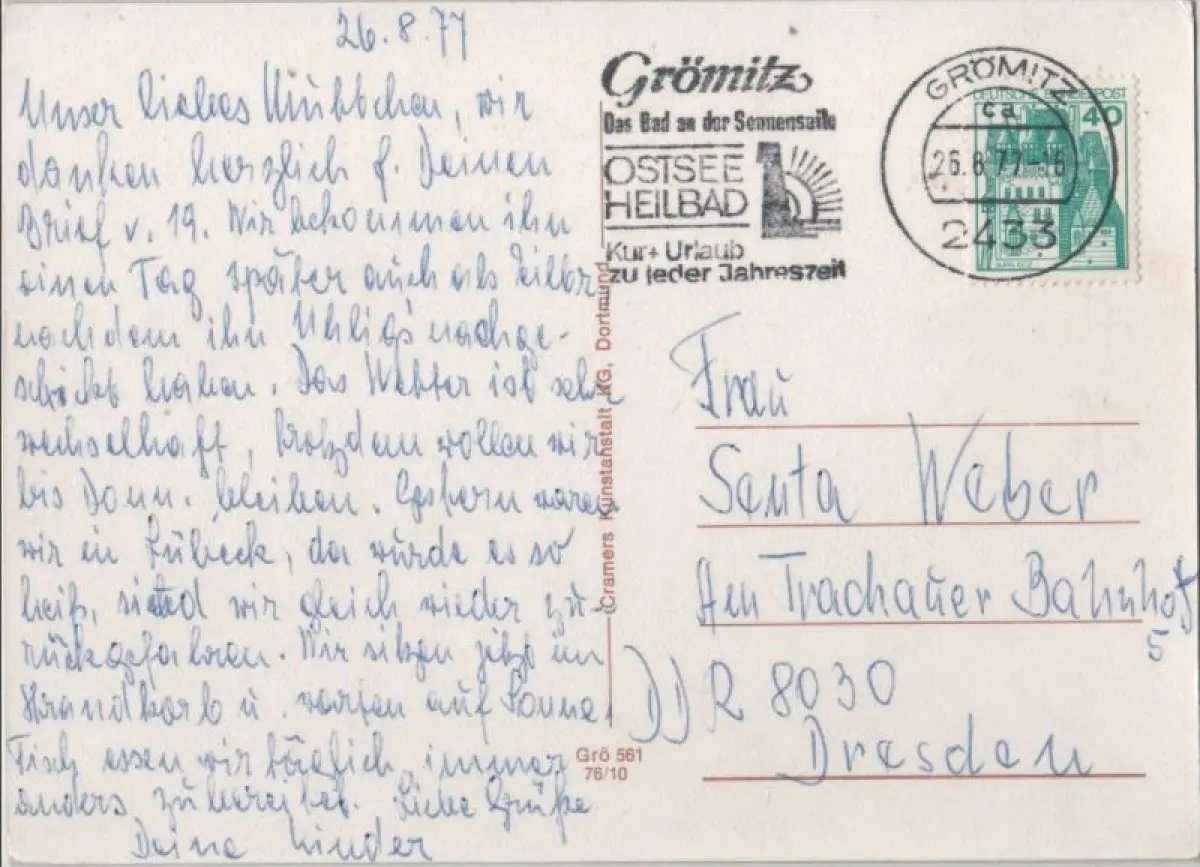 26.8.77
Unser liebes Muttchen, wir
danken herzlich f. Deinen
Brief v. 19. Wir bekommen ihn
einen Tag später auch als Eilbr.
nachdem ihn Uhligs nachge-
schickt haben. Das Wetter ist sehr
wechselhaft, trotzdem wollen wir
bis Donn. bleiben. Gestern waren
wir in Lübeck, da wurde es so
heiß, sind wir gleich wieder zu-
rückgefahren. Wir sitzen jetzt im
Strandkorb u. warten auf Sonne.
Fisch essen wir täglich, immer
anders zubereitet. Liebe Grüße
Deine Kinder
Grömitz
Das Bad an der Sonnenseite
OSTSEE
HEILBAD
Kur+ Urlaub
zu jeder Jahreszeit
GRÖMITZ
ca
26.8.77-16
2433
DEUTSCHE BUNDESPOST
40
Cramers Kunstanstalt KG, Dortmund
Grö 561
76/10
Frau
Senta Weber
Am Trachauer Bahnhof
5
DDR 8030
Dresden